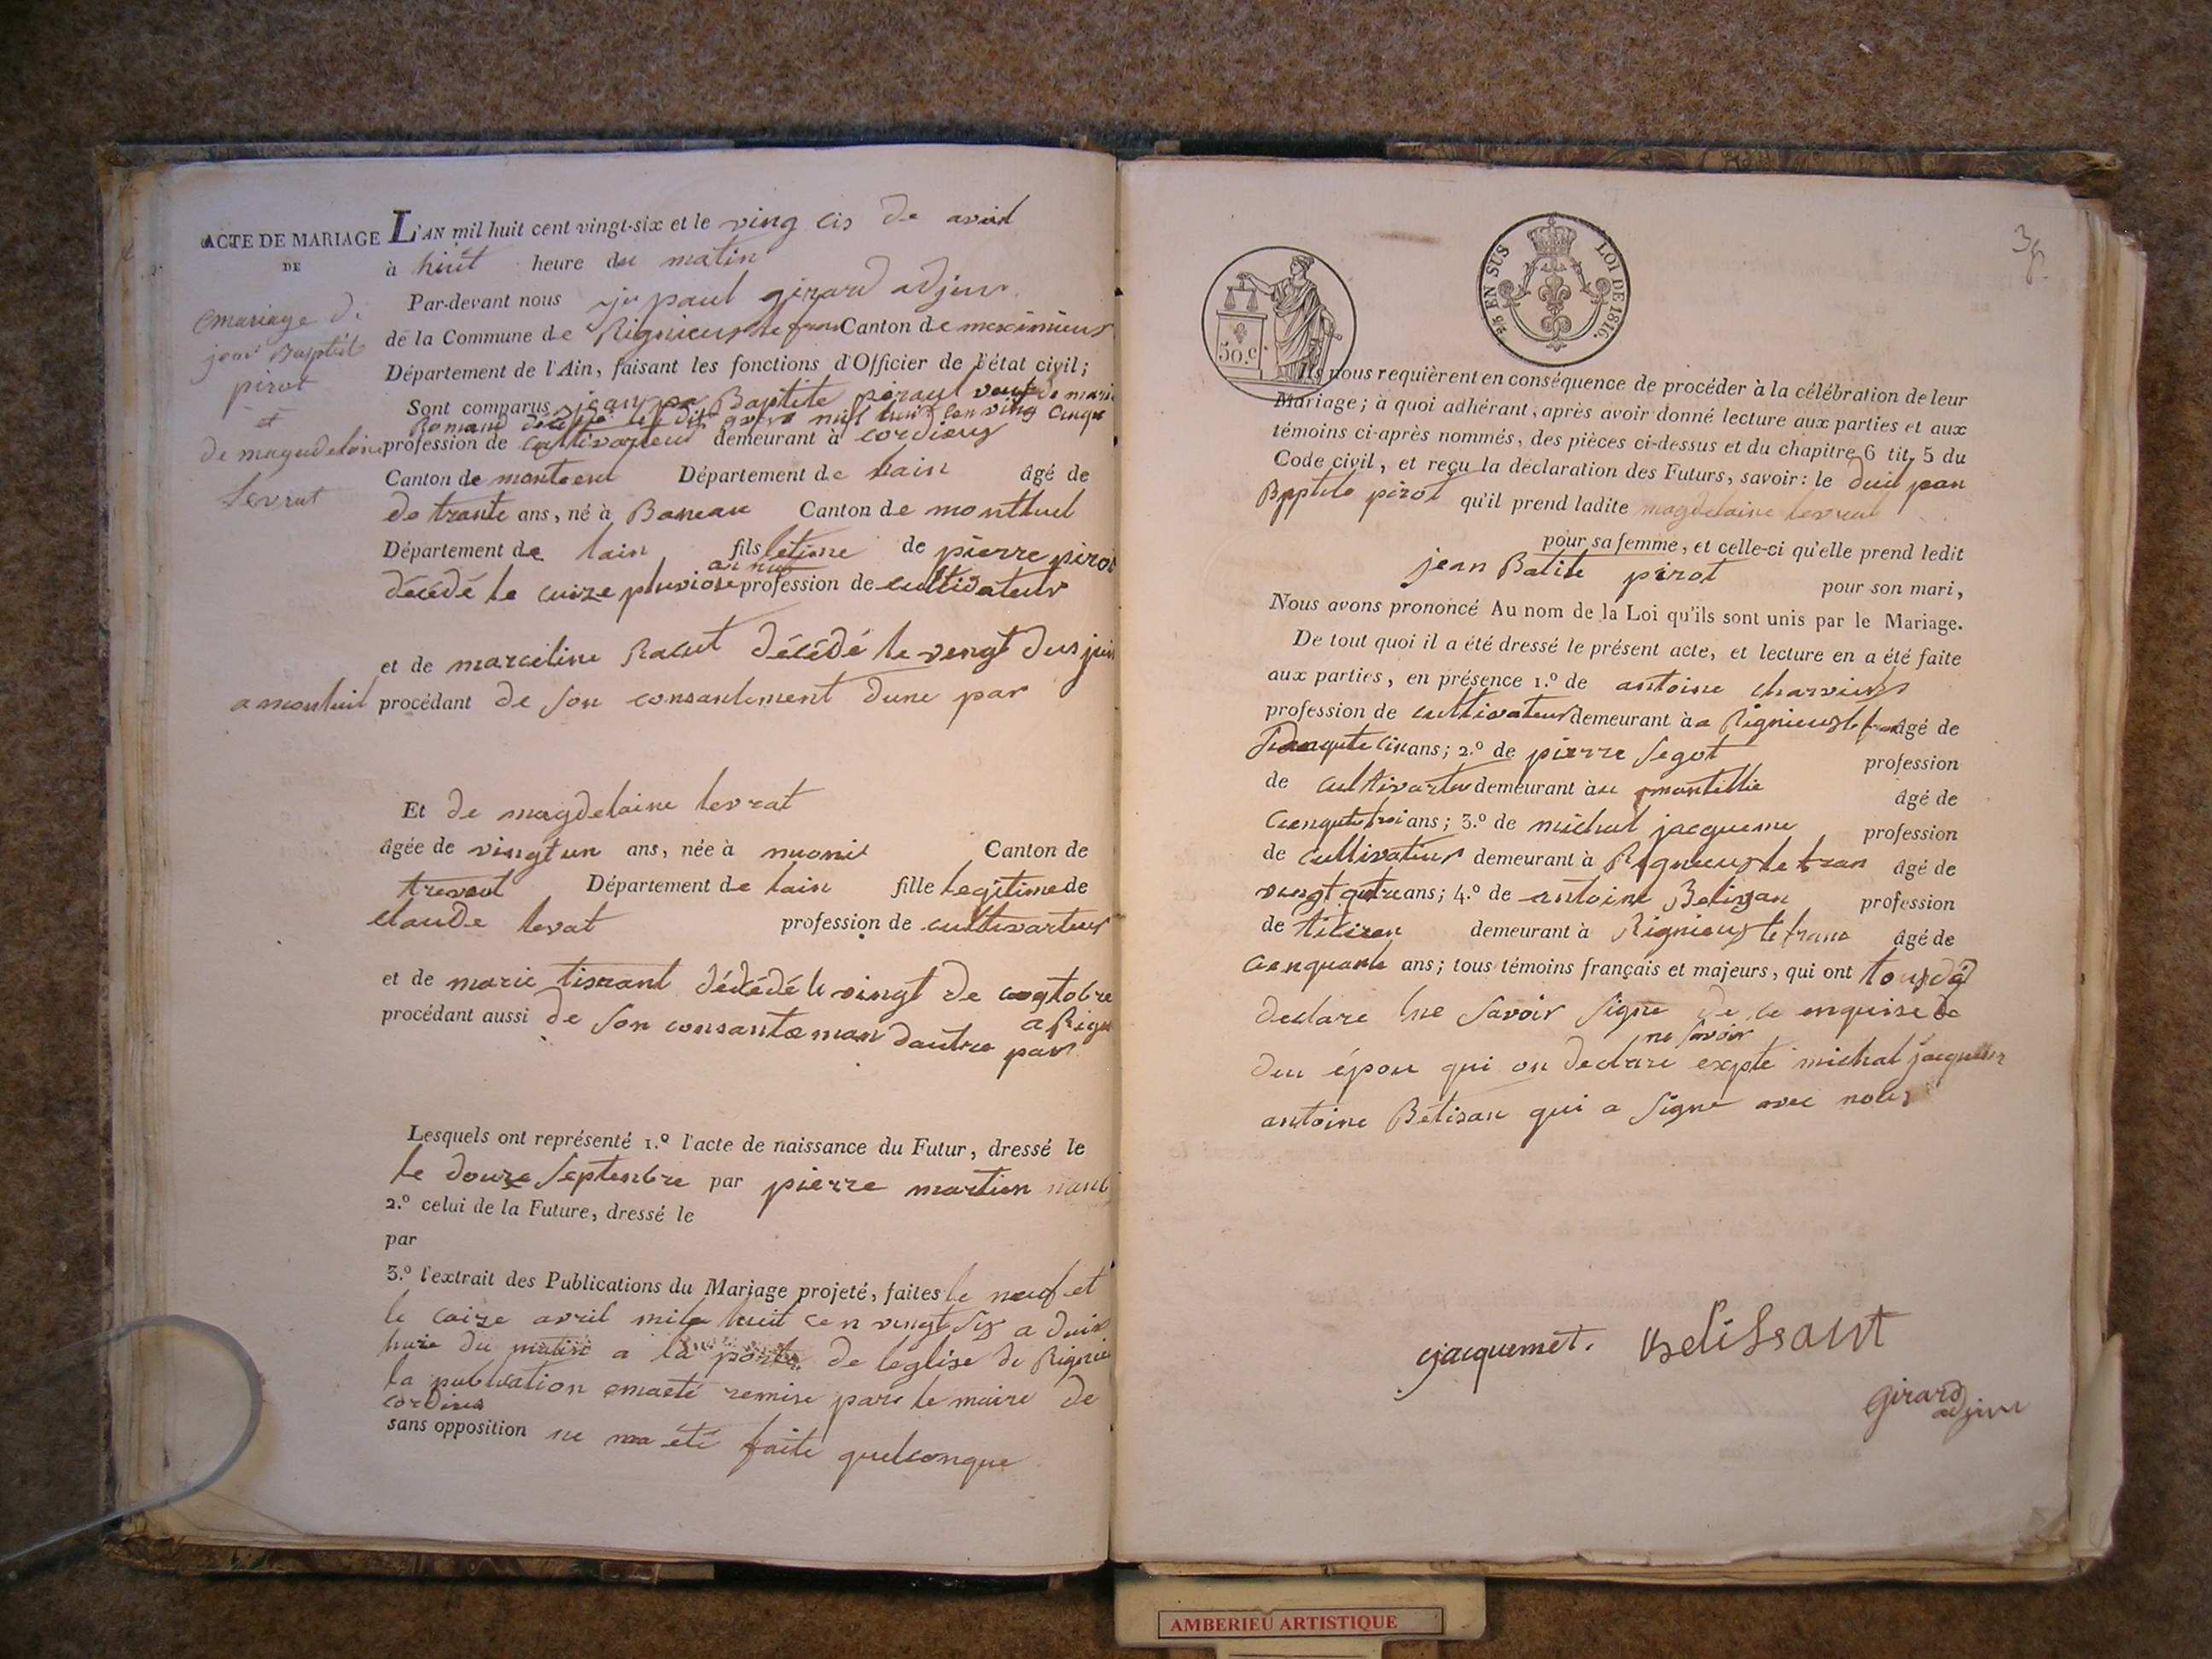 ACTE DE MARIAGE
DE
mariage de
jean Baptiste
pirot
et
de magudelaine
levrat
L'AN mil huit cent vingt-six et le ving cis de avril
à huit heure du matin
Par-devant nous paul girard adjoin
de la Commune de Rignieux le franc Canton de meximieux
Département de l'Ain, faisant les fonctions d'Officier de l'état civil;
Sont comparus jean Baptiste piraut veuf de marie
Romand décédé le dix mil huit cen ving cinque
profession de cultivateur demeurant à cordieux
Canton de Département de lain âgé de
de trante ans, né à Baneau Canton de montluel
Département de lain fils letime de pierre pirot
an nuf
décédé le cuize pluviose profession de cultivateur
et de marceline Racut décédé le vengt deus juin
a montluil procédant de son consantement dune par
Et de magdelaine levrat
âgée de vingt un ans, née à mionit Canton de
trevout Département de lain fille legitime de
claude levat profession de cultivarteur
et de marie tisrant décédé le vingt de cogtobre
a Rign
procédant aussi de son consantaman dautre par
Lesquels ont représenté 1.º l'acte de naissance du Futur, dressé le
le douze septenbre par pierre martien
2.º celui de la Future, dressé le
par
3.º l'extrait des Publications du Mariage projeté, faites le neuf et
le caize avril mile huit cen vingt six a duix
hure du matin a la porte de leglise de Rignieu
la publication emaeté remise pare le maire de
cordieus
sans opposition ne ma été faite quelconque
50.c.
2/5 EN SUS LOI DE 1816.
Ils nous requièrent en conséquence de procéder à la célébration de leur
Mariage; à quoi adhérant, après avoir donné lecture aux parties et aux
témoins ci-après nommés, des pièces ci-dessus et du chapitre 6 tit. 5 du
Code civil, et reçu la déclaration des Futurs, savoir: le duit jean
Bptite pirot qu'il prend ladite magdelaine levrat
pour sa femme, et celle-ci qu'elle prend ledit
jean Batite pirot pour son mari,
Nous avons prononcé Au nom de la Loi qu'ils sont unis par le Mariage.
De tout quoi il a été dressé le présent acte, et lecture en a été faite
aux parties, en présence 1.º de antoine charvieus
profession de cultivateur demeurant à a Rignieus le fran âgé de
ans; 2.º de pierre segot profession
de cultivarteu demeurant à au montellie âgé de
cienquete troi ans; 3.º de michal jacqueme profession
de cultivateur demeurant à Rignieus le fran âgé de
vengt qutre ans; 4.º de antoine Belisan profession
de tisiran demeurant à Rignieus le franc âgé de
cienquante ans; tous témoins français et majeurs, qui ont tous dé
declare ne savoir signe de ce enquise de
ne savoir
deu épou qui on declare expte michal jacquemer
antoine Betisan qui a signe avec nous
jacquemet. Belissant
girard
adjoin
AMBERIEU ARTISTIQUE